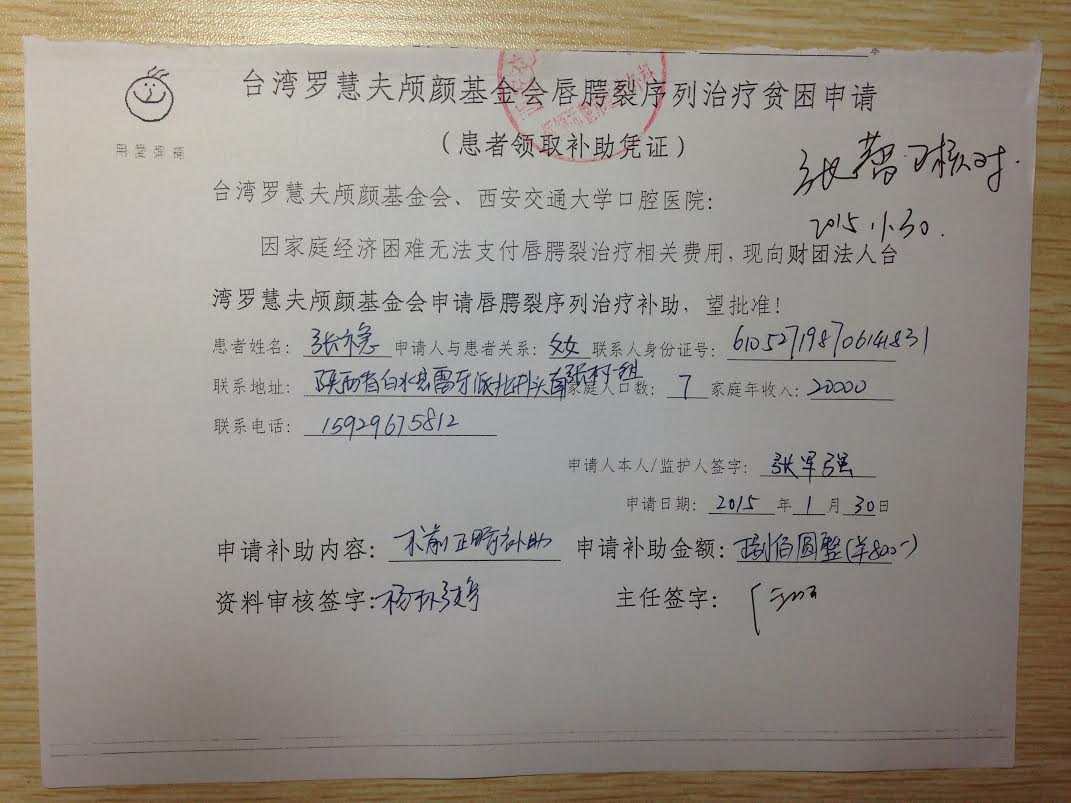 台湾罗慧夫颅颜基金会唇腭裂序列治疗贫困申请
(患者领取补助凭证)
用愛彌補
张蕾 已核对.
2015.1.30.
台湾罗慧夫颅颜基金会、西安交通大学口腔医院:
因家庭经济困难无法支付唇腭裂治疗相关费用,现向财团法人台
湾罗慧夫颅颜基金会申请唇腭裂序列治疗补助,望批准!
患者姓名: 张 申请人与患者关系: 父女 联系人身份证号: 610527198706141831
联系地址: 陕西省白水县雷牙 家庭人口数: 7 家庭年收入: 20000
联系电话: 15929675812
申请人本人/监护人签字: 张军强
申请日期: 2015 年 1 月 30 日
申请补助内容: 术前正畸补助 申请补助金额: 捌佰圆整(¥800-)
资料审核签字: 杨
主任签字: